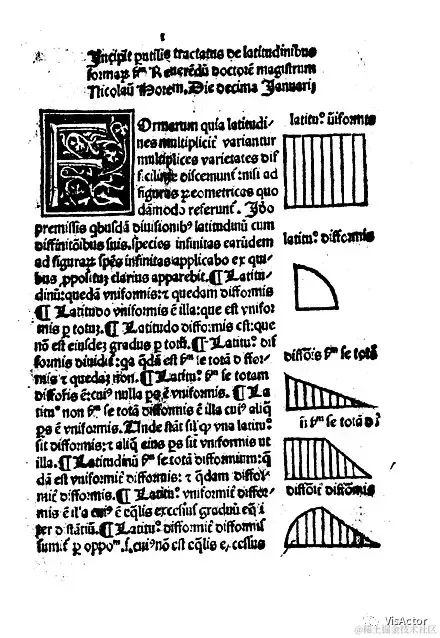 1
Incipit putilis tractatus de latitudinibus
formarꝝ ẜm Reuerēdū doctorē magistrum
Nicolaū Horem. Die decima Januarij
FOrmarum quia latitudi-
nes multiplicit̄ variantur
multiplices varietates dif
ficilime discernunt̄: nisi ad
figuras geometricas quo
dāmodo referunt̄. Ideo
premissis qbusdā diuisionibꝰ latitudinū cum
diffinitōibus suis. species infinitas earūdem
ad figuraꝝ spēs infinitas applicabo ex qui
bus ꝓpositū clarius apparebit. ¶ Latitu-
dinū: quedā vniformis: ⁊ quedam difformis
¶ Latitudo vniformis ē illa: que est vnifor
mis ꝑ totuꝫ. ¶ Latitudo difformis est: que
nō est eiusdeꝫ gradus ꝑ totū. ¶ Latituᵒ. dif
formis diuidit̄: qꝛ qdā est ẜm se totā diffor-
mis ⁊ quedaꝫ non. ¶ Latituᵒ. ẜm se totam
difformis ē: cuiꝰ nulla ps ē vniformis. ¶ La
tituᵒ non ẜm se totā difformis ē illa cuiꝰ aliq
ps ē vniformis. Unde stāt sil' ꝙ vna latituᵒ
sit difformis: ⁊ aliq eius ps sit vniformis ut
illa. ¶ Latitudinū ẜm se totā difformium: q
dā est vniformit̄ difformis: ⁊ qdam diffor-
mit̄ difformis. ¶ Latituᵒ. vniformit̄ diffor-
mis ē illa cuiꝰ ē eqlis excessus graduū eq̄ i
ter distātiū. ¶ Latituᵒ. difformit̄ difformis
sumit̄ ꝑ oppoᵐ. s. cuiꝰ nō est eqlis excessus
latituᵒ. ūiformis
latituᵒ. difformis
difformis ẜm se totā
difformit̄ difformis
VisActor
@稀土掘金技术社区